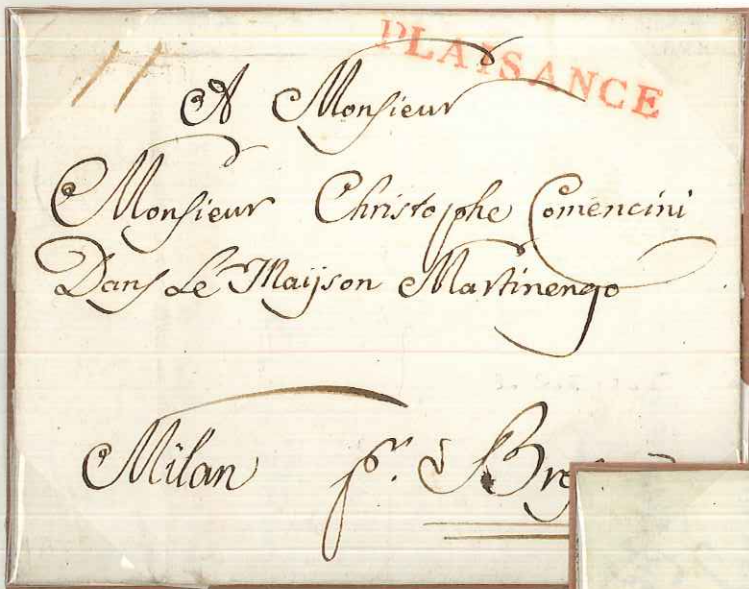 PLAISANCE
A Monsieur
Monsieur Christophe Comencini
Dans Le Maijson Martinengo
Milan pr.